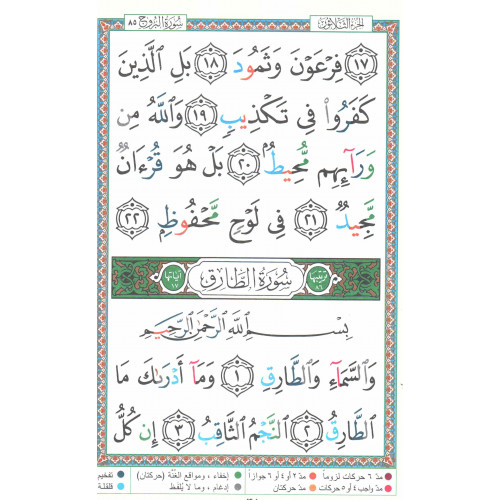 سورة البروج ٨٥ الجزء الثلاثون
١٧ فِرْعَوْنَ وَثَمُودَ ١٨ بَلِ ٱلَّذِينَ
كَفَرُوا۟ فِى تَكْذِيبٍ ١٩ وَٱللَّهُ مِن
وَرَآئِهِم مُّحِيطٌۢ ٢٠ بَلْ هُوَ قُرْءَانٌ
مَّجِيدٌ ٢١ فِى لَوْحٍ مَّحْفُوظٍۭ ٢٢
ترتيبها ٨٦ سُورَةُ الطَّارِقِ آياتها ١٧
بِسْمِ ٱللَّهِ ٱلرَّحْمَٰنِ ٱلرَّحِيمِ
وَٱلسَّمَآءِ وَٱلطَّارِقِ ١ وَمَآ أَدْرَىٰكَ مَا
ٱلطَّارِقُ ٢ ٱلنَّجْمُ ٱلثَّاقِبُ ٣ إِن كُلُّ
مدّ ٦ حركات لزوماً مدّ ٢ أو ٤ أو ٦ جوازاً إخفاء، ومواقع الغُنَّة (حركتان) تفخيم
مدّ واجب ٤ أو ٥ حركات مدّ حركتان إدغام، وما لا يُلفَظ قلقلة